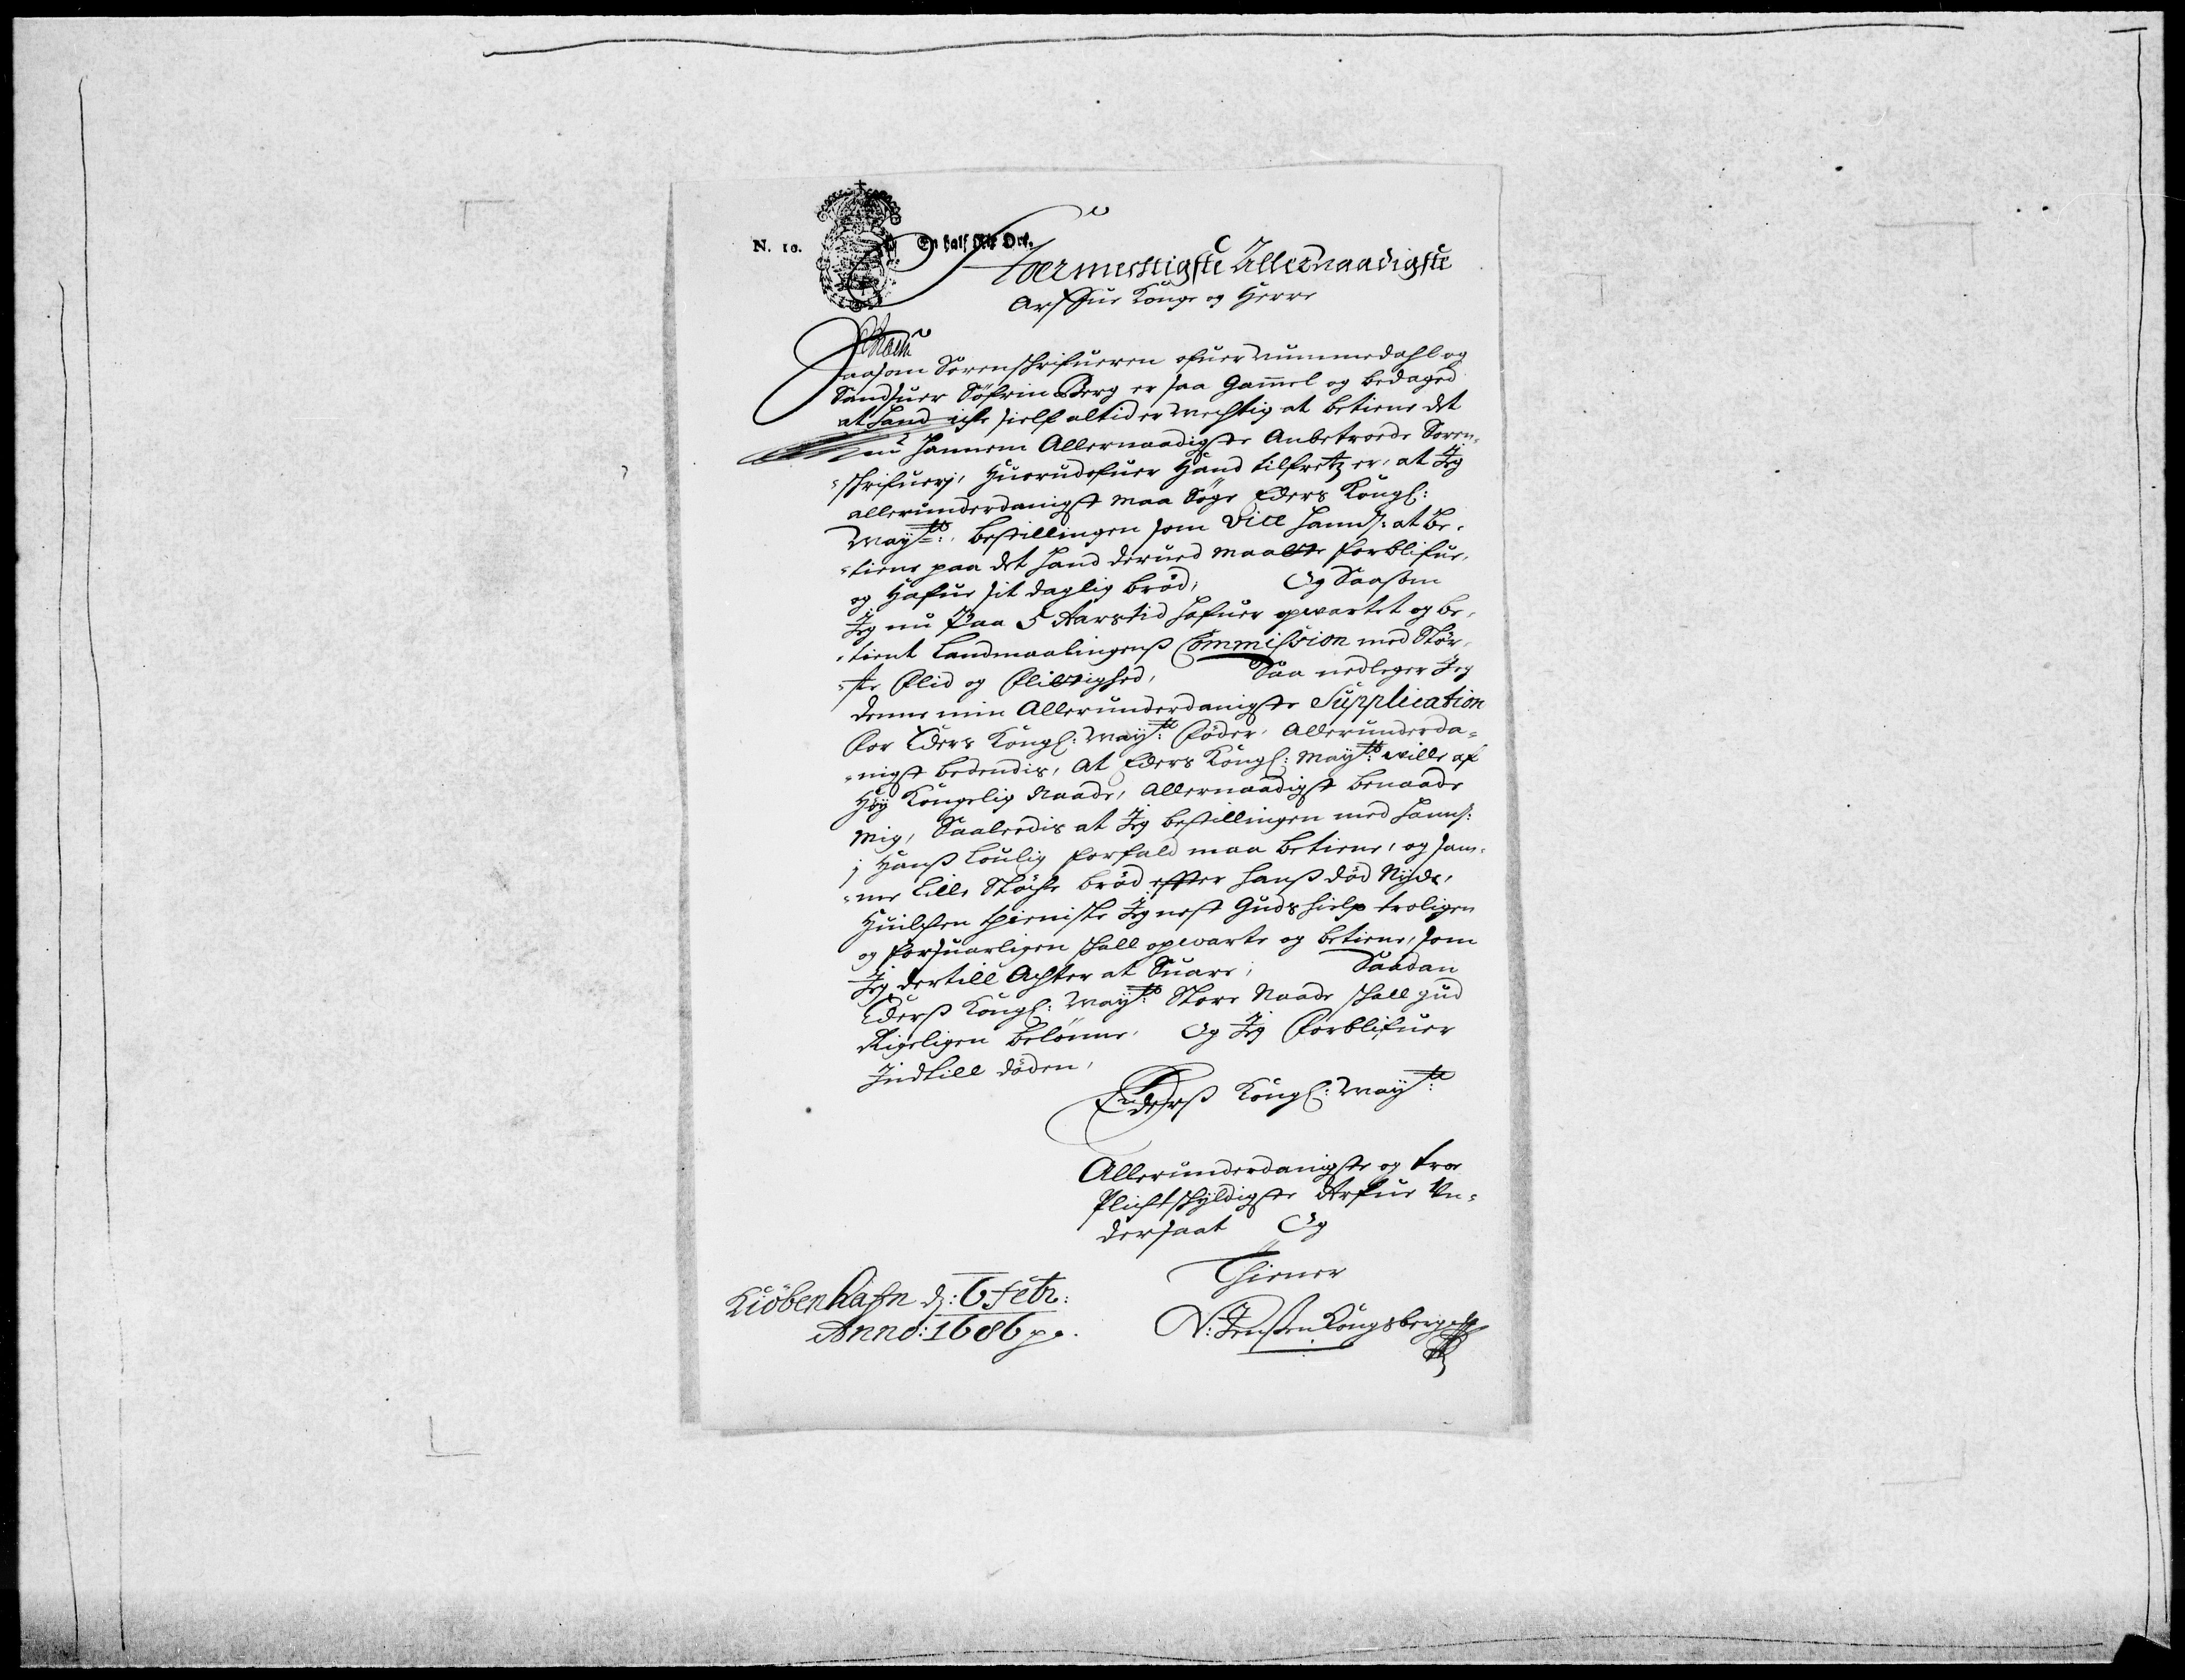 N. 10.
En half Rix Ort.
Stoermechtigste Allernaadigste
Arffue Konge og Herre
Saasom Sorenschrifueren ofuer Nummedahl og
Sandsuer Söfrin Berg er saa Gammel og bedaged
at hand iche sielf altid er mechtig at betiene det
nu hannem Allernaadigste Anbetroede Soren-
schrifuerj, Huorudofuer Hand tilfretz er, at Jeg
allerunderdanigst maa Söge Eders Kongl:
Mayts: bestillingen som Vice hannß: at be-
tiene paa det hand derued maatte forblifue,
og Hafue sit daglig bröd, Og Saasom
Jeg nu Paa 5 Aarstid hafuer opwartet og be-
tient Landmaalingenß Commission med Stör-
ste Flid og flittighed, Saa nedleger Jeg
denne min Allerunderdanigste Supplication
for Eders Kongl: Mayts: föder, Allerunderda-
nigst bedendis, At Eders Kongl: Mayts: wille af
Höy Kongelig Naade, Allernaadigst benaade
Mig, Saaledis at Jeg bestillingen med hannß:
j Hanß Loulig forfald maa betiene, og sam-
me lille Støche bröd effter hanß död Nyde,
Huilchen thieniste Jeg nest Guds hielp troligen
og forsuarligen schall opwarte og betiene, som
Jeg dertill Achter at Suare, Saadan
Ederß Kongl: Mayts: Store Naade schall gud
Rigeligen belönne, Og Jeg Forblifuer
Jndtill döden,
Ederß Kongl: Mayts:
Allerunderdanigste og troe
Plichtschyldigste Arfue Un-
dersaat Og
Thiener
N: Jenßen Kongsberg
Kiöbenhafn d: 6 Febr:
Anno: 1686 p.